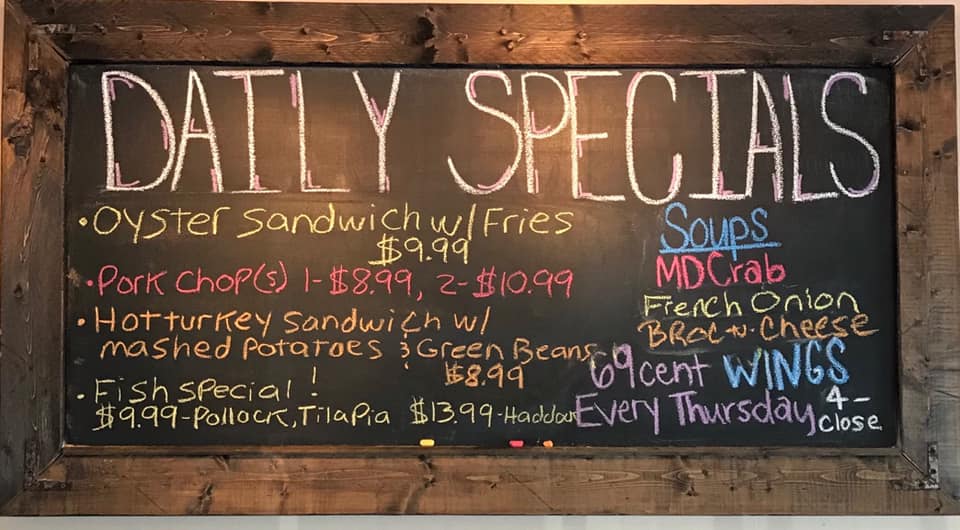 DAILY SPECIALS
• Oyster Sandwich w/ Fries
$9.99
• Pork Chop(s) 1-$8.99, 2-$10.99
• Hot turkey Sandwich w/
mashed Potatoes & Green Beans
$8.99
• Fish special!
$9.99-Pollock, Tilapia $13.99-Haddock
Soups
MD Crab
French Onion
Broc -n- Cheese
69cent WINGS
Every Thursday 4-
Close